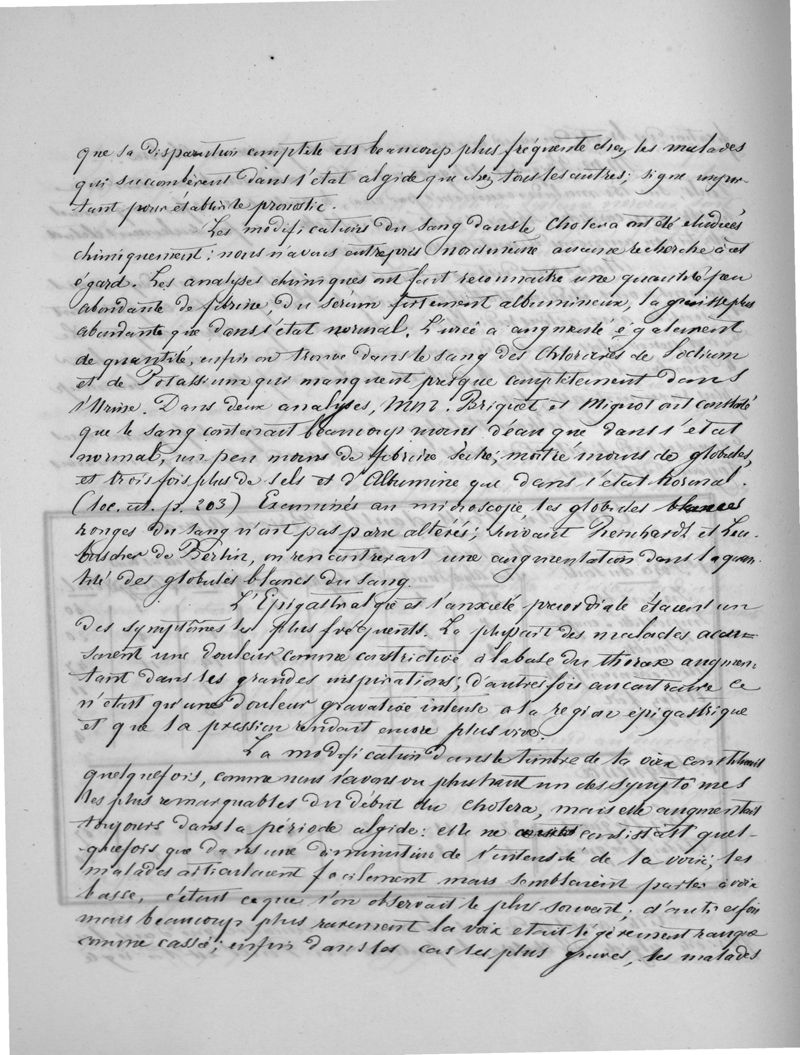 que sa disparution complète est beaucoup plus fréquente chez les malades
qui succombèrent dans l'état algide que chez tous les autres; signe impor-
tant pour établir le pronostic.
Les modifications du sang dans le Cholera ont été étudiées
chimiquement; nous n'avons entrepris nous même aucune recherche à cet
égard. Les analyses chimiques ont fait reconnaître une quantité peu
abondante de fibrine, du sérum fortement albumineux, la graisse plus
abondante que dans l'état normal. L'urée a augmenté également
de quantité, enfin on trouve dans le sang des Chlorures de Sodium
et de Potassium qui manquent presque complètement dans
l'Urine. Dans deux analyses, MM. Briquet et Mignot ont constaté
que le sang contenait beaucoup moins d'eau que dans l'état
normal, un peu moins de fibrine sèche, moitié moins de globules,
et trois fois plus de sels et d'Albumine que dans l'état Normal.
(loc. cit. p. 203) Examinés au microscope, les globules
rouges du sang n'ont pas paru altérés; suivant Reinhardt et Leu-
buscher de Berlin, on rencontrerait une augmentation dans la quan-
tité des globules blancs du sang.
L'Epigastralgie et l'anxiété précordiale étaient un
des symptômes les plus fréquents. La plupart des malades accu-
saient une douleur comme constrictive à la base du thorax augmen-
tant dans les grandes inspirations; d'autres fois au contraire ce
n'était qu'une douleur gravative intense à la région épigastrique
et que la pression rendait encore plus vive.
La modification dans le timbre de la voix constituait
quelquefois, comme nous l'avons vu plus haut un des symptômes
les plus remarquables du début du cholera, mais elle augmentait
toujours dans la période algide: elle ne consistait quel-
quefois que dans une diminution de l'intensité de la voix; les
malades articulaient facilement mais semblaient parler à voix
basse, c'était ce que l'on observait le plus souvent; d'autres fois
mais beaucoup plus rarement la voix était légèrement rauque
comme cassée; enfin dans les cas les plus graves, les malades